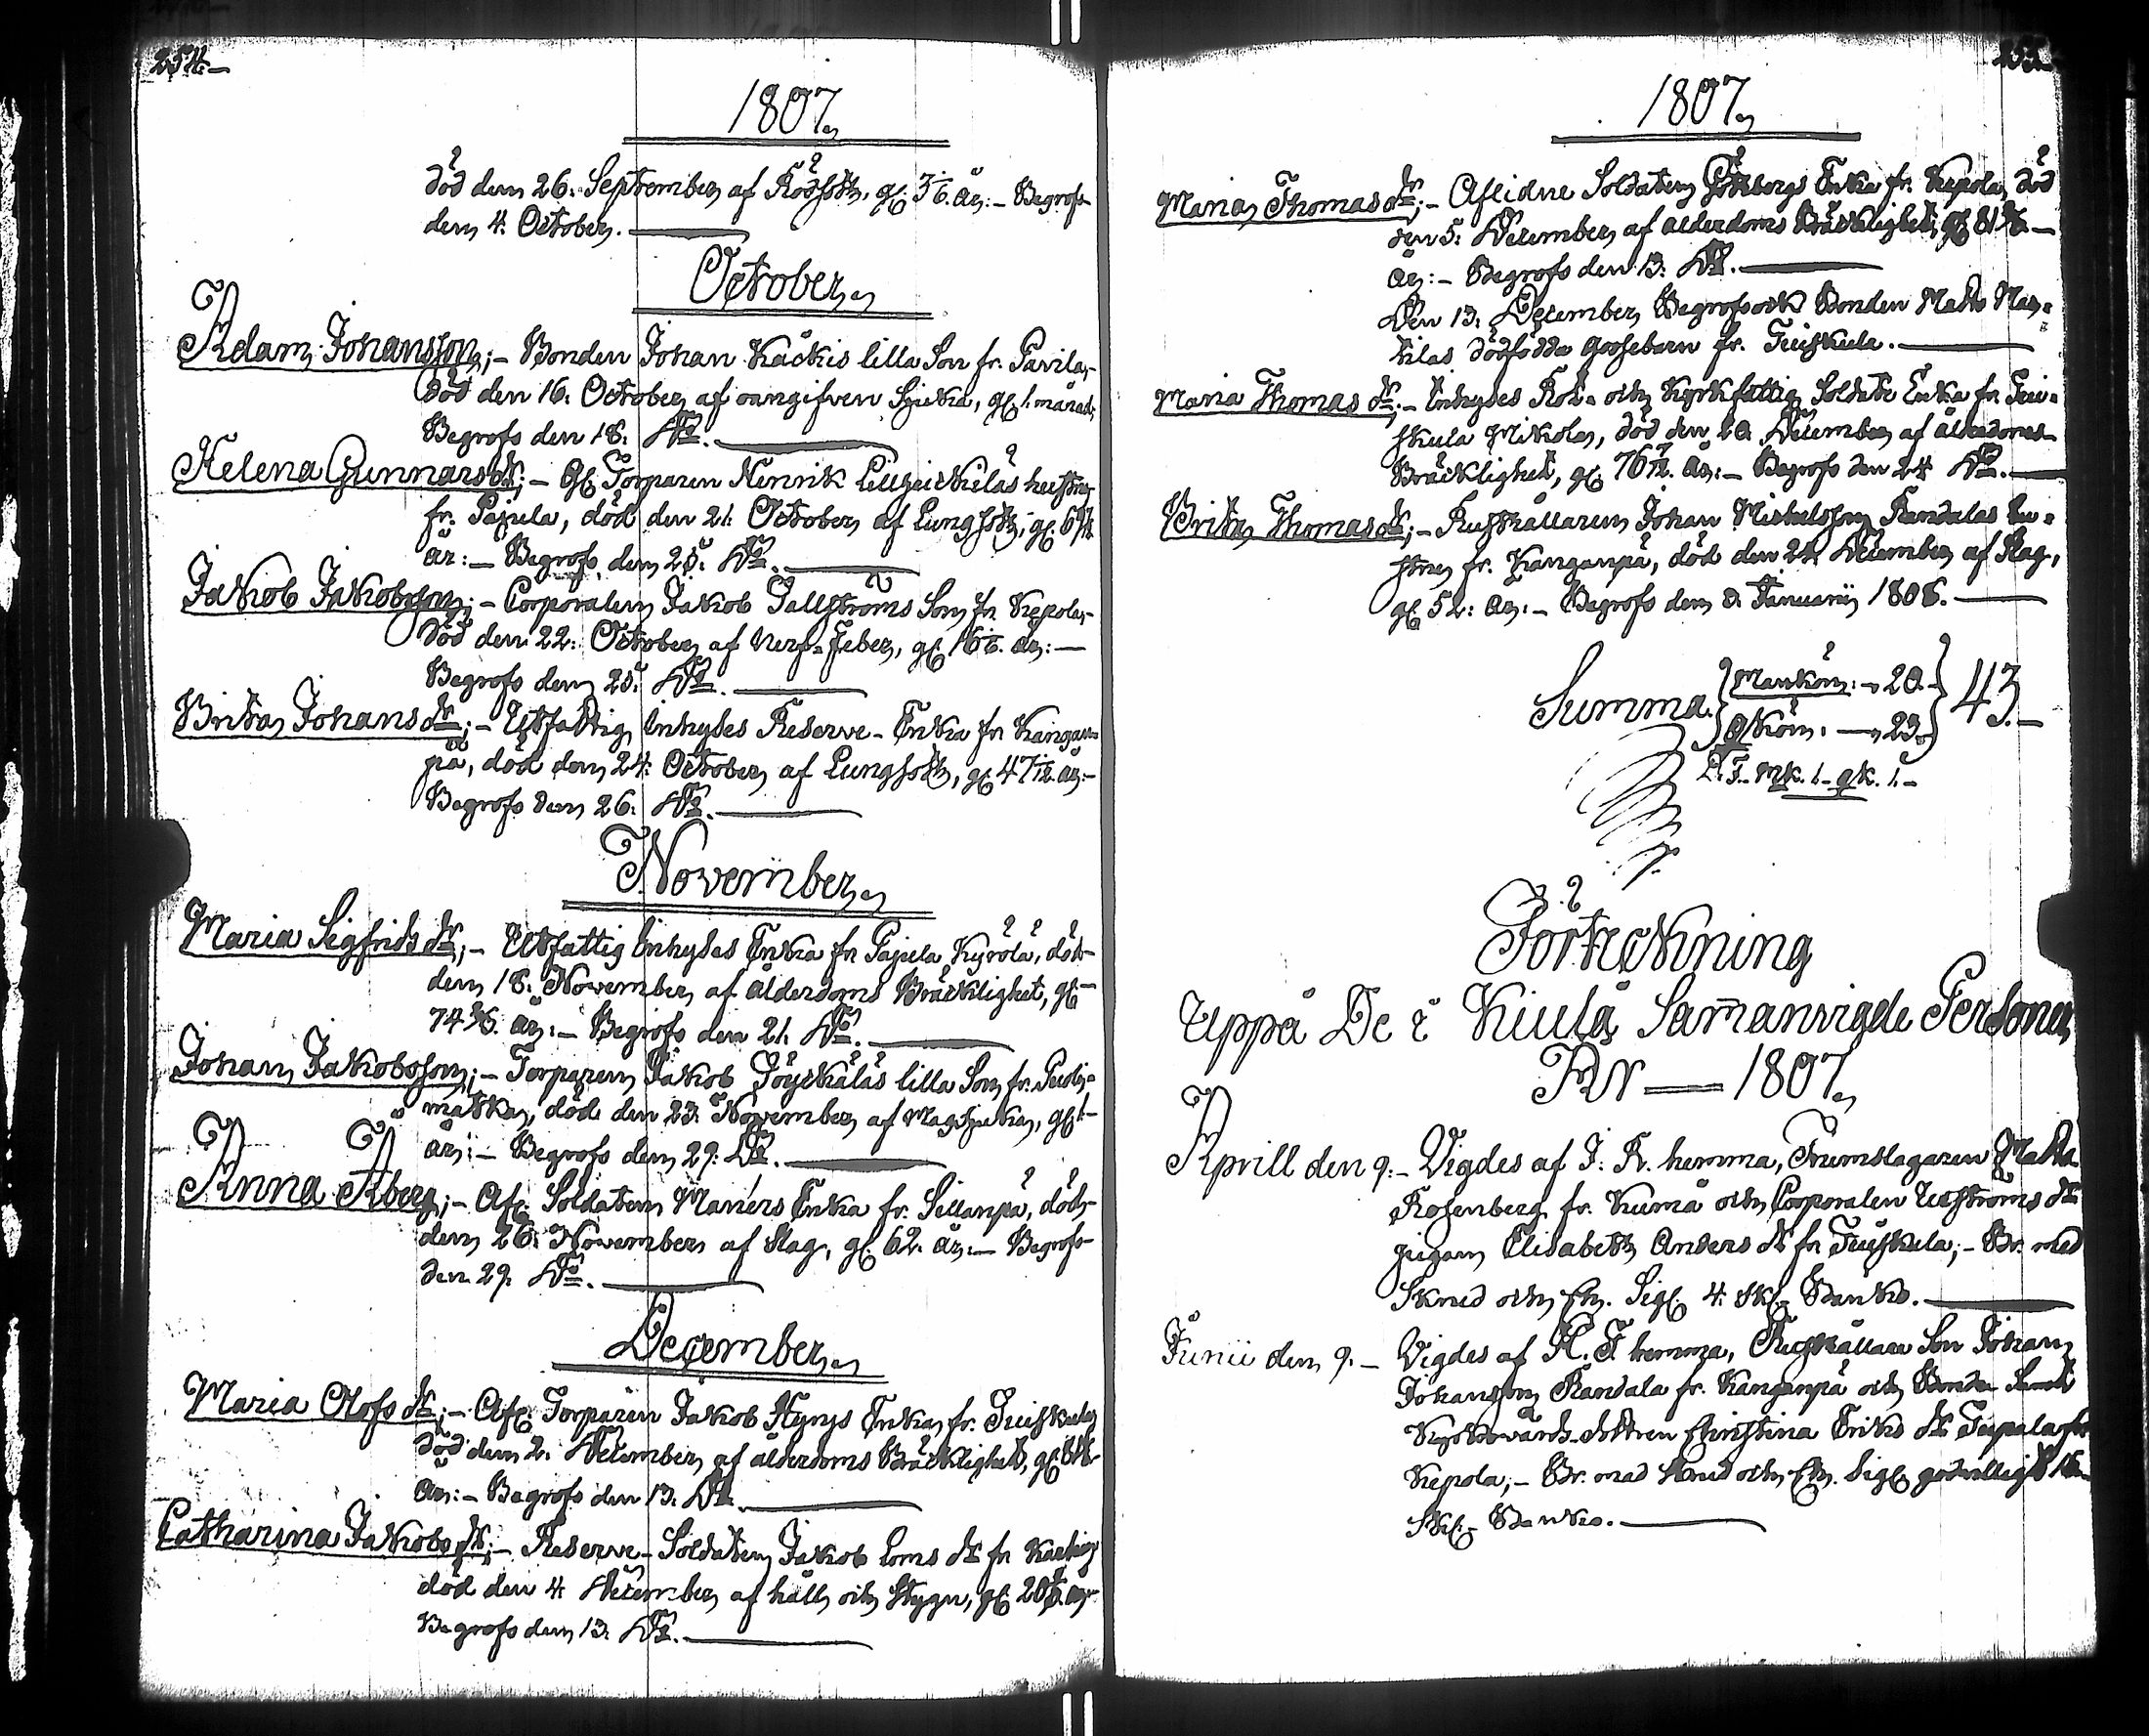 254.-
1807.
död den 26. September af Rödsoth, gl. 3 1/6. år:- Begrofs
den 4. October.
October.
Adam Johansson;- Bonden Johan Kackis lilla Son fr. Pavila,-
död den 16. October af oangifven Sjuka, gl. 1. månad;
Begrofs den 18. do.
Helena Gunnarsdr;- Gl. Torparen Henrik hustru
fr. Pajula, död den 21. October af Lungsoth, gl.
år:- Begrofs den 25. do.
Jakob Jakobsson;- Corporalen Jakob Tallströms Son fr. Kepola,-
död den 22. October af Nerf-Feber, gl. 16 år:-
Begrofs den 25. do.
Brita Johansdr;- Utfattig Inhyses Reserve-Enka fr. Kangan-
pä, död den 24. October af Lungsoth, gl. 47 1/12. år:-
Begrofs den 26. do.
November.
Maria Sigfridsdr;- Utfattig Inhyses Enka fr. Pajula Kyrölä, död-
den 18. November af ålderdoms Bräcklighet, gl.-
74 5/6. år:- Begrofs den 21. do.
Johan Jakobsson;- Torparen Jakob lilla Son fr.
matka, död den 23. November af Magsjuka, gl. 1-
år:- Begrofs den 29. do.
Anna Åberg;- Afl. Soldaten Maners Enka fr. Sillanpä, död-
den 26. November af Slag, gl. 62. år:- Begrofs
den 29. do.
December.
Maria Olofsdr;- Afl. Torparen Jakob Hyrys Enka fr. Tuiskula
död den 2. December af ålderdoms Bräcklighet, gl.
år:- Begrofs den 13. do.
Catharina Jakobsdr;- Reserve-Soldaten Jakob Loms dr fr.
död den 4. December af håll och Stygn, gl. 20 år-
Begrofs den 13. do.
255.
1807.
Maria Thomasdr;- Aflidne Soldaten Götzborgs Enka fr. Kepola, död
den 5. December af ålderdoms Bräcklighet, gl. 81 5/6.-
år:- Begrofs den 13. do.
Den 13. December Begrofs ock Bonden Matts Mar-
tilas dödfödda gossebarn fr. Tuiskula.
Maria Thomasdr;- Inhyses Rot- och Kyrkfattig Soldate Enka fr. Tui-
skula Mikola, död den 20. December af ålderdoms
Bräcklighet, gl. 76 år:- Begrofs den 24 do.
Brita Thomasdr;- Rusthållaren Johan Mickelsson Randalas hu-
stru fr. Kanganpä, död den 24. December af Slag,
gl. 52: år:- Begrofs den 3. Januarii 1808.
Summa Mankön:- 20.- 43.-
Qkön.- 23.
D. F. mk. 1.- qk. 1.-
Förteckning
Uppå De i Kiula Samanvigde Personer
År 1807.
Aprill den 9.- Vigdes af J: R. hemma, Trumslagaren Matts
Rosenberg fr. Kumå och Corporalen Utströms dr
pigan Elisabeth Anders dr fr. Tuiskula;- Br. med
Skrud och Ch. Sigl. 4. Skl. Banko.
Junii den 9.- Vigdes af R. T. hemma, Rusthållare Son Johan
Johansson Randala fr. Kanganpä och Bonden Samt
Kyrkovärds-dottren Christina Eriks dr Tupala fr.
Kepola;- Br. med Skrud och Ch. Sigl. godvilligt 16
Skl. Banko.